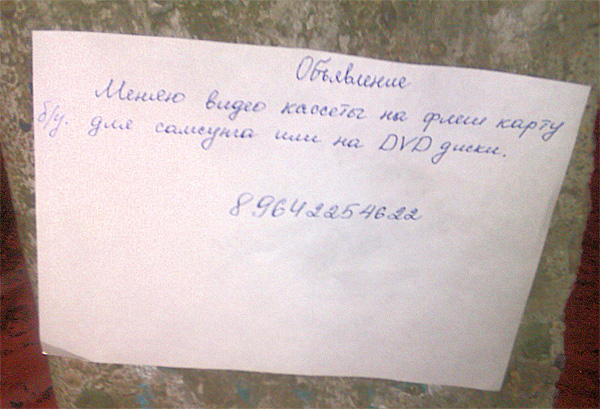 Объявление
Меняю видео кассеты на флеш карту
б/у. для самсунга или на DVD диски.
89642254622